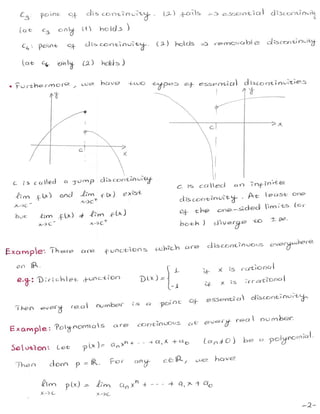 C₃ point of discontinuity. (2) fails → essential discontinuity
(at c₃ only (1) holds)
C₄ : point of discontinuity. (2) holds → removable discontinuity
(at c₄ only (2) holds)
• Furthermore, we have two types of essential discontinuities
y
y
c
x
c
x
c is called a jump discontinuity
lim f(x) and lim f(x) exist
x→c⁻ x→c⁺
but lim f(x) ≠ lim f(x)
x→c⁻ x→c⁺
c is called an infinite
discontinuity. At least one
of the one-sided limits (or
both) diverge to ±∞.
Example: There are functions which are discontinuous everywhere
on ℝ.
e.g: Dirichlet function D(x) = { 1 if x is rational
-1 if x is irrational
Then every real number is a point of essential discontinuity.
Example: Polynomials are continuous at every real number
Solution: Let p(x) = aₙxⁿ + ... + a₁x + a₀ (aₙ≠0) be a polynomial.
Then dom p = ℝ. For any c∈ℝ, we have
lim p(x) = lim aₙxⁿ + ... + a₁x + a₀
x→c x→c
-2-